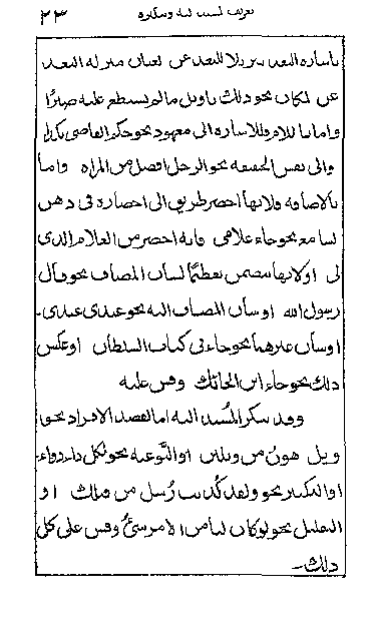 تعريف المسند اليه وتنكيره ٢٣
باشاره البعيد تنزيلا للبعد عن لعيان منزله البعد
عن لمكان نحو ذلك تاويل مالم تسطع عليه صبرًا
واما باللام فللاشاره الى معهود نحو حكم القاضى بكذا
والى نفس الحقيقه نحو الرجل افضل من المراه واما
بالاضافه فلانها اخصر طريق الى احضاره فى ذهن
لسامع نحو جاء غلامى فانه اخصر من الغلام الذى
لى اولانها تتضمن تعظيمًا لشان المضاف نحو قال
رسول الله او شان المضاف اليه نحو عبدى عندى.
او شان غيرهما نحو جاءنى كتاب السلطان او عكس
ذلك نحو جاء ابن الحائك وقس عليه
وقد ينكر المُسند اليه اما لقصد الافراد نحو
ويل هونُ من ويلين او النَّوعيه نحو لكل داء دواء
او التكثير نحو ولقد كُذبت رُسل من قبلك او
التقليل نحو لو كان لنا من الامر شئٌ وقس على كل
ذلك.